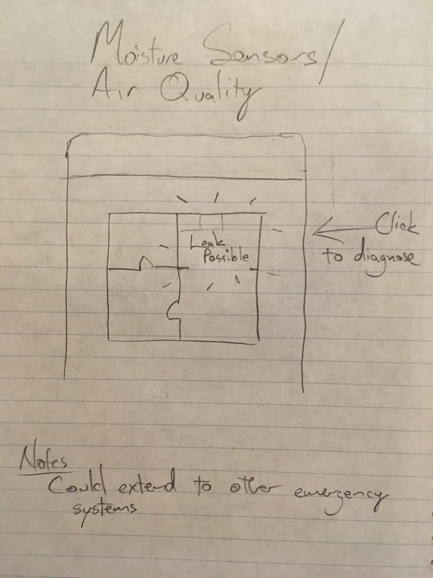 Moisture Sensors/
Air Quality
Leak
Possible
Click
to diagnose
Notes
Could extend to other emergency
systems